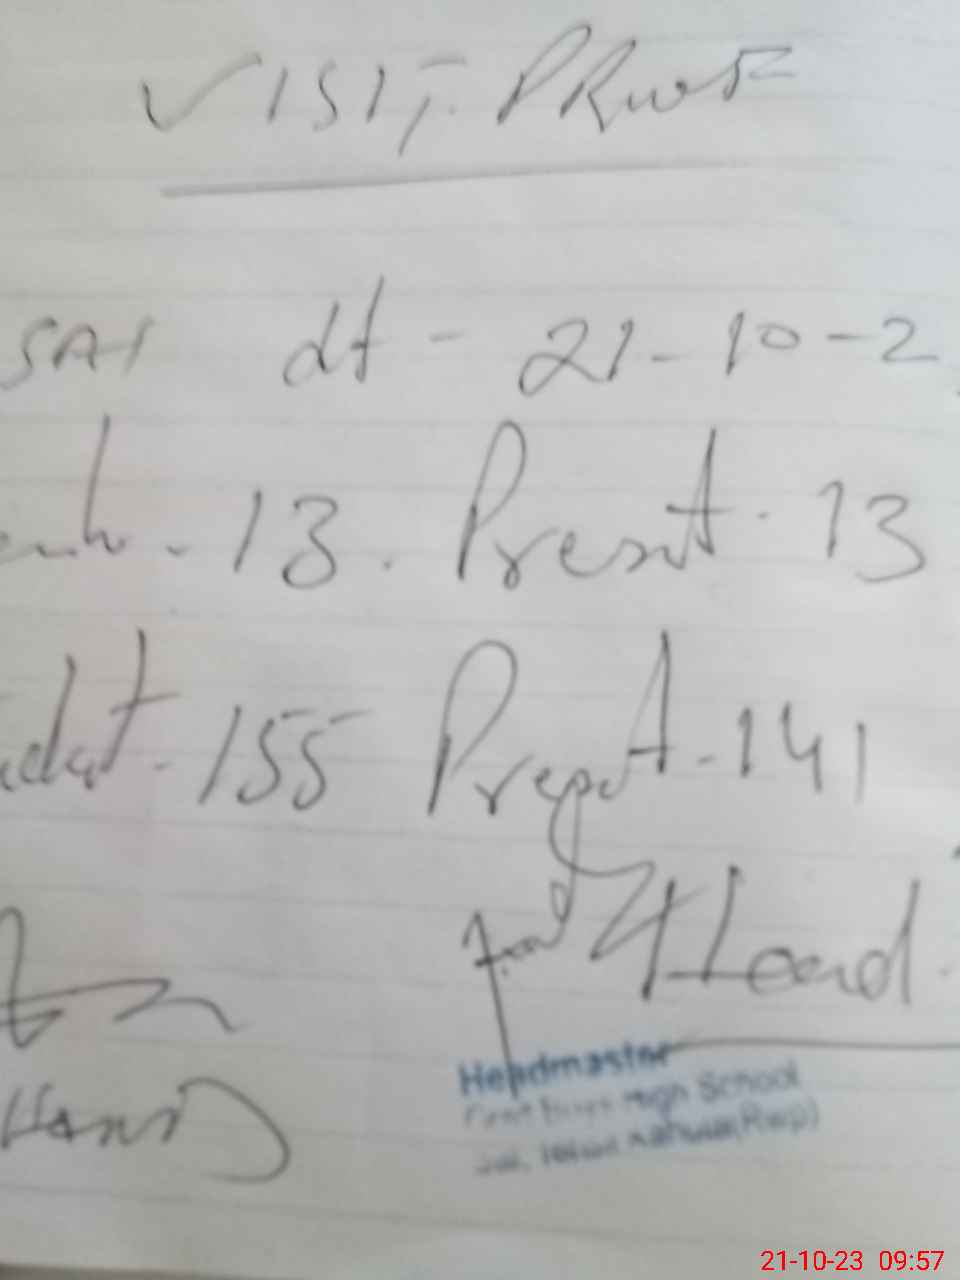 VISIT PROOF
SAT dt - 21-10-2
. 13 . Present . 13
dent - 155 Present - 141
for Head
Headmaster
Govt Boys High School
(Rwp)
21-10-23 09:57